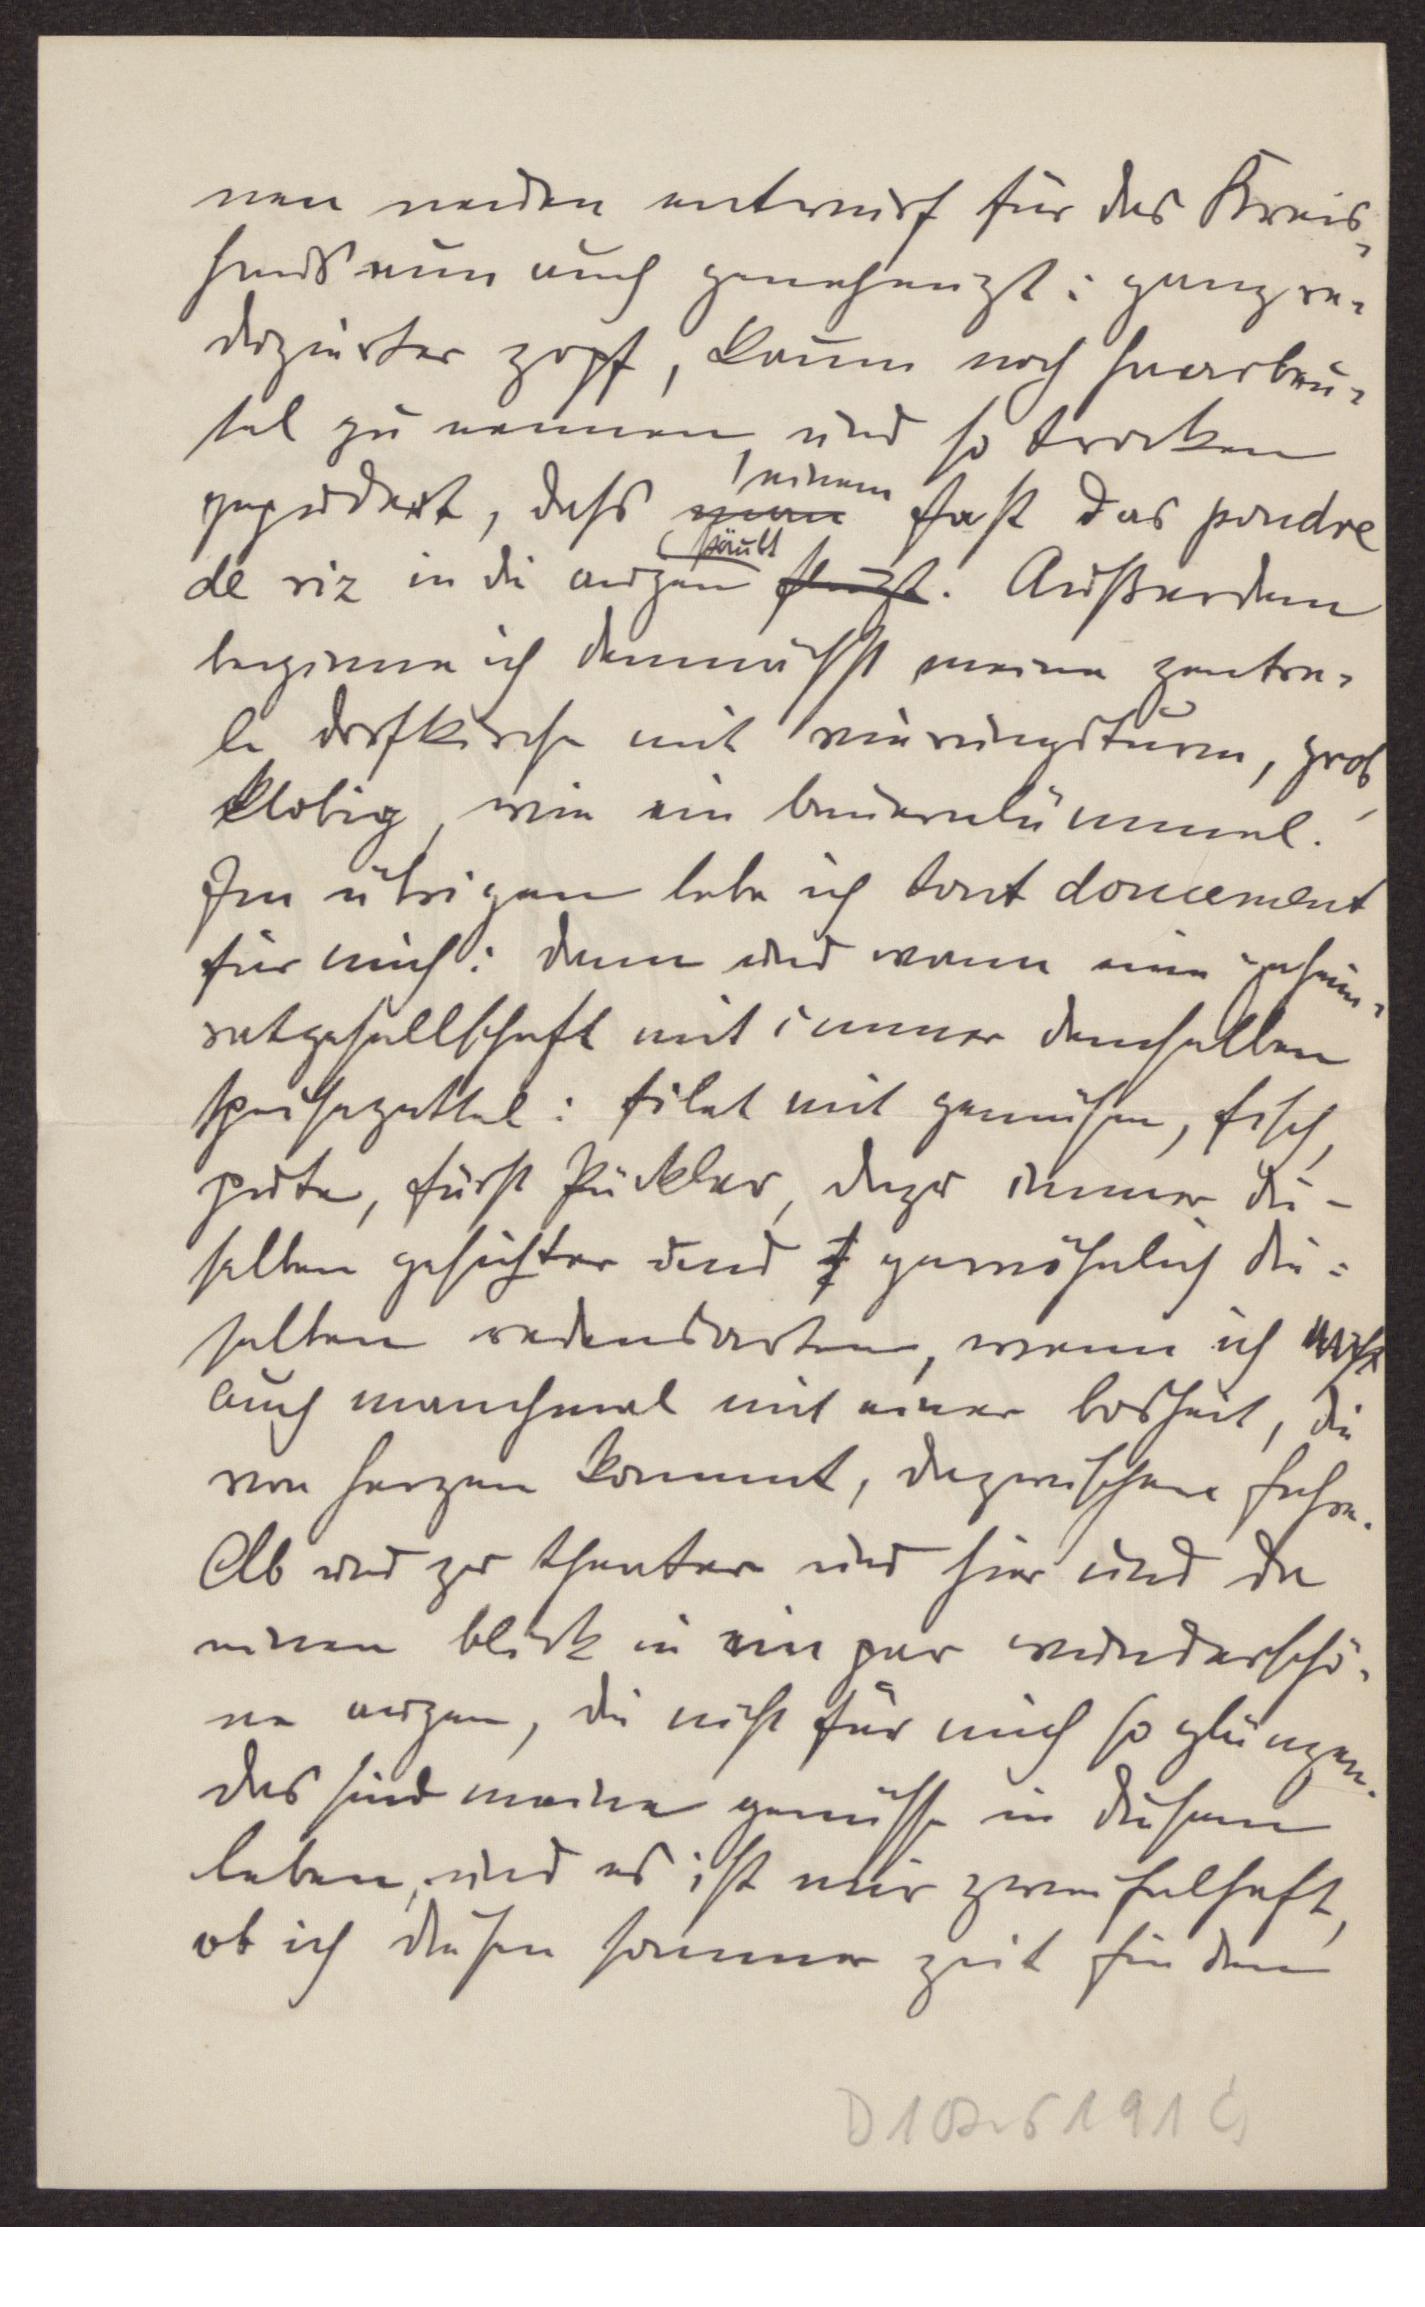 nen neuen entwurf für das Kreis-
haus nun auch genehmigt: ganz re-
duzierter zopf, kaum noch haarbeu-
tel zu nennen und so trocken
gepudert, dass einem fast das poudre
de riz in die augen stäubt. Außerdem
beginne ich demnächst meine zentra-
le dorfkirche mit vierungsturm, grob,
klobig, wie ein bauernlümmel.
Im übrigen lebe ich tout doucement
für mich: dann und wann eine geheim-
ratgesellschaft mit immer demselben
speisezettel: filet mit gemüsen, fisch,
pute, fürst Pückler, dazu immer die-
selben gesichter und gewöhnlich die-
selben redensarten, wenn ich nicht
auch manchmal mit einer bosheit, die
von herzen kommt, dazwischen fahre.
Ab und zu theater und hier und da
einen blick in ein par wunderschö-
ne augen, die nicht für mich so glänzen.
das sind meine genüsse in diesem
leben, und es ist mir zweifelhaft,
ob ich diesen sommer zeit finden